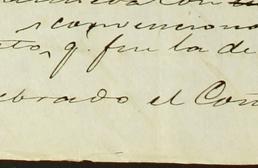 y convenciona
to, q. fue la de
ebrado el Con